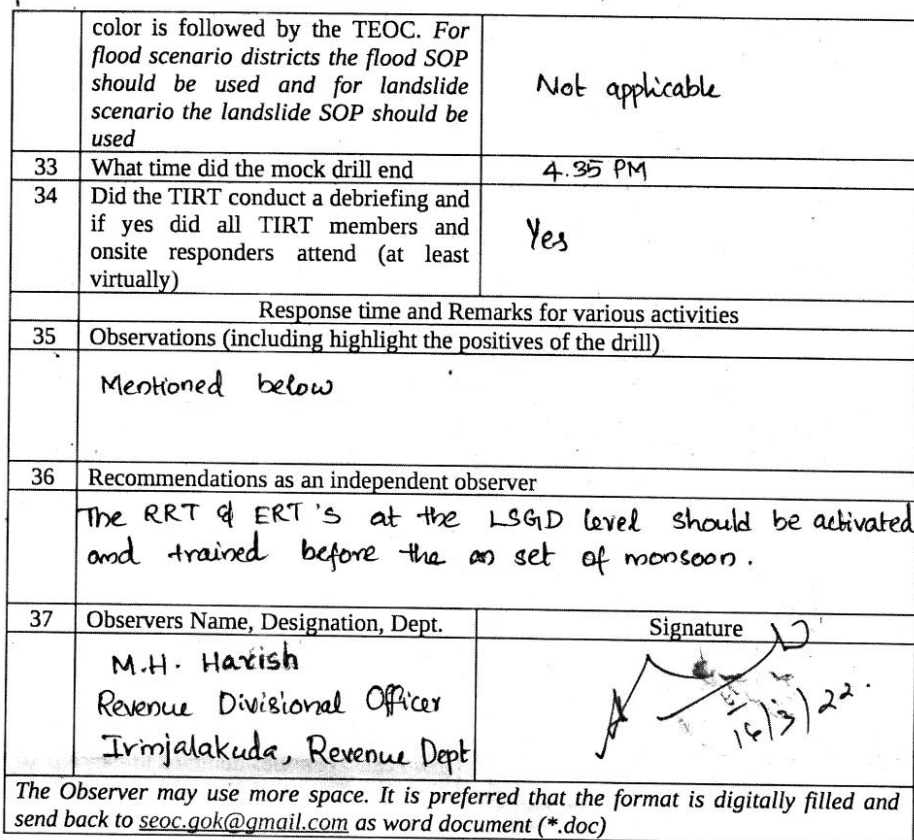 color is followed by the TEOC. For
flood scenario districts the flood SOP
should be used and for landslide
scenario the landslide SOP should be
used
Not applicable
33 What time did the mock drill end 4.35 PM
34 Did the TIRT conduct a debriefing and
if yes did all TIRT members and
onsite responders attend (at least
virtually)
Yes
Response time and Remarks for various activities
35 Observations (including highlight the positives of the drill)
Mentioned below
36 Recommendations as an independent observer
The RRT & ERT's at the LSGD level should be activated
and trained before the on set of monsoon.
37 Observers Name, Designation, Dept. Signature
M.H. Harish
Revenue Divisional Officer
Irinjalakuda, Revenue Dept
16/3/22.
The Observer may use more space. It is preferred that the format is digitally filled and
send back to seoc.gok@gmail.com as word document (*.doc)